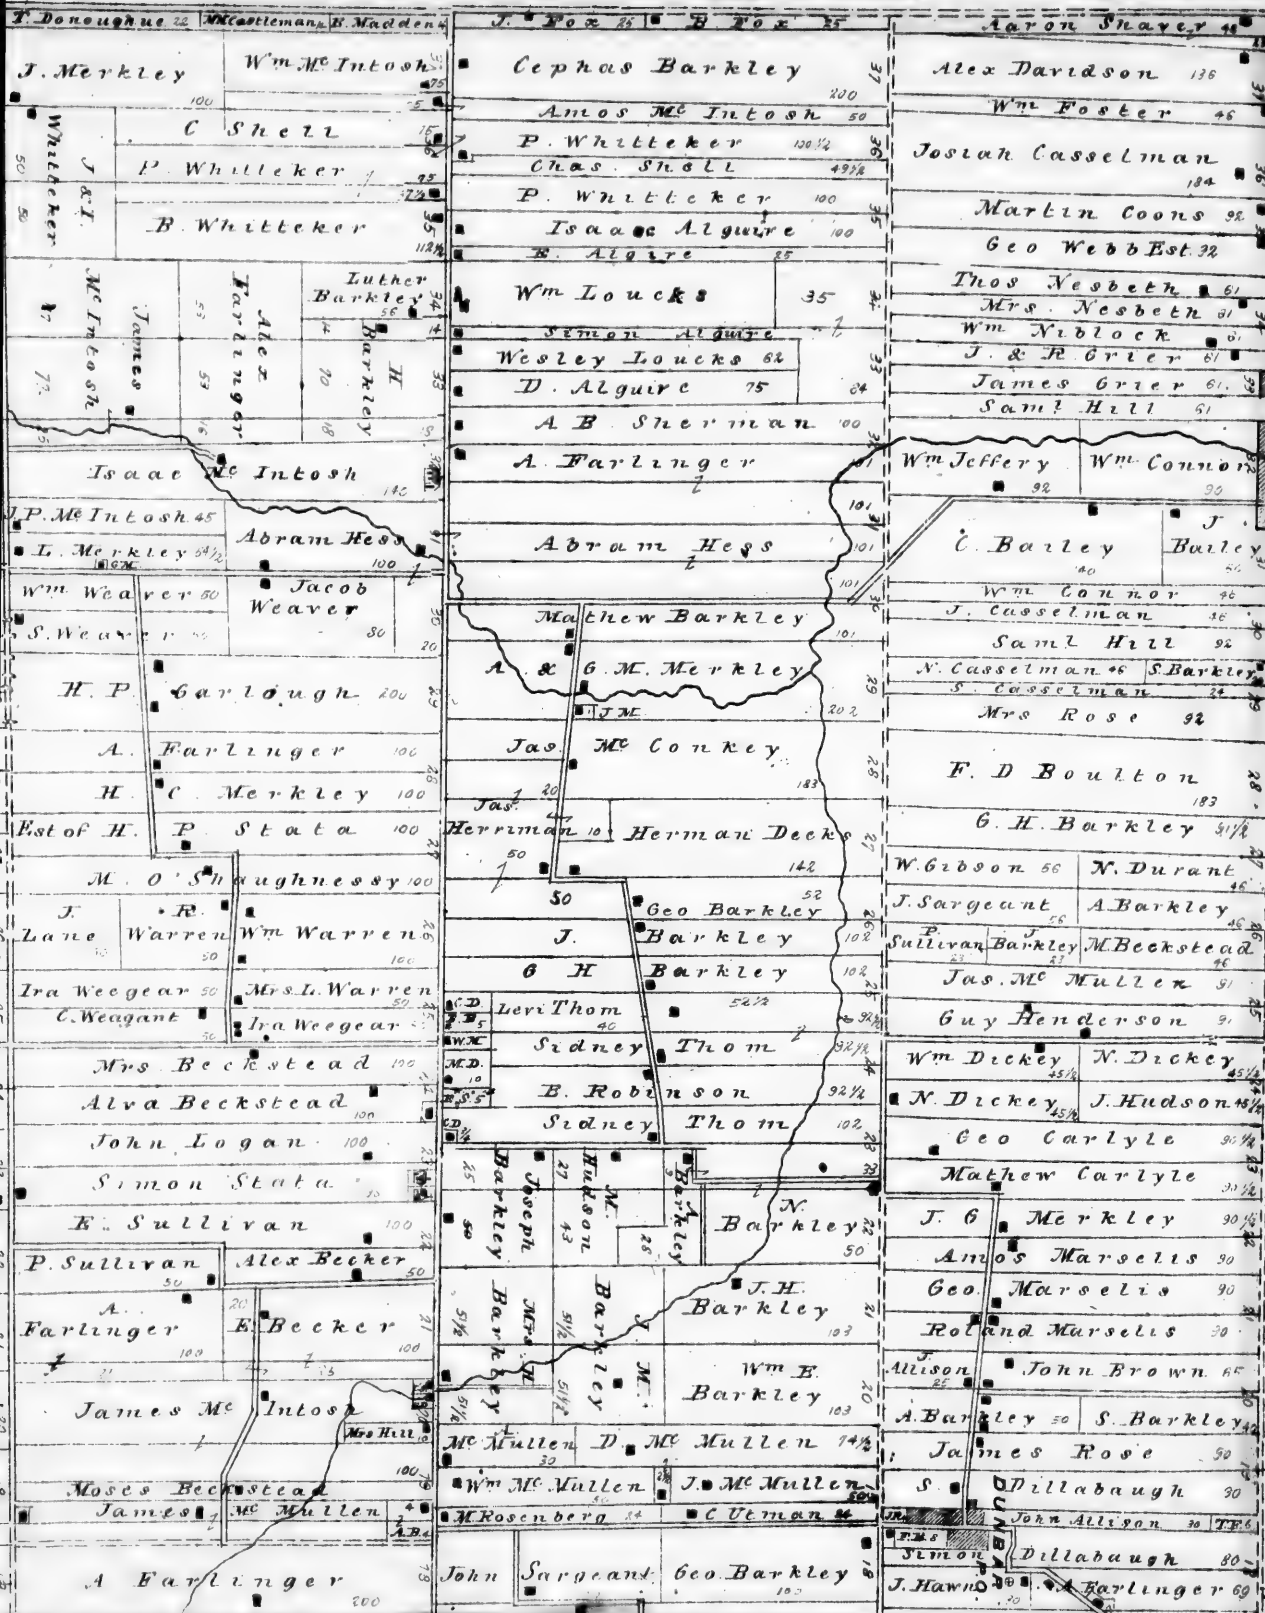 T. Donoughue 22
B. Madden
J. Merkley
100
Wm Mc Intosh
75
C Shell
P. Whitteker
95
B. Whitteker
112½
Whitteker
J & I.
50
50
Mc Intosh
James
Farlinger
Alex
53
53
16
Luther
Barkley
56
H
Barkley
14
70
18
34
33
Isaac Mc Intosh
140
J. P. Mc Intosh 45
L. Merkley 54½
Abram Hess
100
Wm Weaver 50
S. Weaver
Jacob
Weaver
80
20
H. P. Garlough 200
29
A. Farlinger 100
H. C. Merkley 100
Est of H. P. Stata 100
M. O'Shaughnessy 100
J.
Lane
R.
Warren
50
Wm Warren
100
26
Ira Weegear 50
Mrs. L. Warren
50
C. Weagant
50
Ira Weegear
Mrs Beckstead 100
Alva Beckstead
100
John Logan 100
Simon Stata
23
E. Sullivan 100
22
P. Sullivan
50
Alex Becker
50
A.
Farlinger
100
20
E. Becker
100
21
James Mc Intosh
Mrs Hill
100
Moses Beckstead
James Mc Mullen 4
A.B.
A Farlinger
200
18
J. Fox 25
B Fox 25
Cephas Barkley
200
37
Amos Mc Intosh 50
P. Whitteker 100½
36
Chas. Shell 49½
P. Whitteker 100
35
Isaac Alguire 100
E. Algire 25
Wm Loucks
35
Simon Alguire
Wesley Loucks 62
33
D. Alguire 75
24
A B Sherman 100
A. Farlinger
101
101
31
Abram Hess
101
101
30
Mathew Barkley
101
A. & G. M. Merkley
29
J. M.
202
Jas. Mc Conkey
28
183
20
Jas.
Herriman 10
50
Herman Deeks
27
142
50
52
Geo Barkley
26
J. Barkley 102
G H Barkley 102
52½
C. D.
Levi Thom
40
92½
W. M
Sidney Thom
92½
M. D.
10
E. Robinson 92½
Sidney Thom 102
C D
Barkley
Joseph
25
50
Hudson
M.
27
43
Barkley
A
28
N.
Barkley
50
22
Barkley
Mrs. H
51½
51½
Barkley
J. M.
51½
51½
J. H.
Barkley
103
21
Wm E.
Barkley
103
20
Mc Mullen
30
D. Mc Mullen 74½
Wm Mc Mullen
J. Mc Mullen
50
M Rosenberg 24
C Utman 24
John Sargeant
Geo. Barkley
18
Aaron Shaver 46
Alex Davidson 136
37
Wm Foster 46
Josiah Casselman
184
36
Martin Coons 92
Geo Webb Est. 92
Thos Nesbeth 61
Mrs. Nesbeth 61
34
Wm Niblock 61
J. & R. Grier 61
James Grier 61
33
Saml Hill 61
Wm Jeffery
92
Wm Connor
90
32
C. Bailey
J
Bailey
Wm Connor 46
J. Casselman 46
30
Saml Hill 92
N. Casselman 46
S. Barkley
S. Casselman 24
29
Mrs Rose 92
F. D Boulton
183
28
G. H. Barkley 91½
27
W. Gibson 56
N. Durant
46
J. Sargeant
56
A. Barkley
46
26
P.
Sullivan
23
J.
Barkley
23
M. Beckstead
46
Jas. Mc Mullen 91
Guy Henderson 91
25
Wm Dickey
45½
N. Dickey
45½
N. Dickey
45½
J. Hudson 45½
Geo Carlyle 90½
23
Mathew Carlyle
90½
J. G Merkley 90½
22
Amos Marselis 90
Geo. Marselis 90
21
Roland Marselis 90
J.
Allison
25
John Brown 65
20
A. Barkley 50
S. Barkley
42
James Rose 90
S. Dillabaugh 30
DUNBAR P.O
John Allison 30
T.F. 6
Simon Dillabaugh 80
J. Hawn
20
A. Farlinger 69